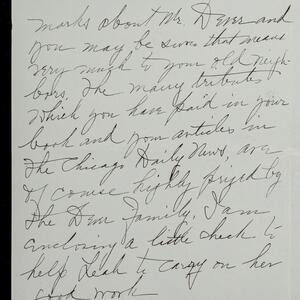 marks about Mr. Dever and
you may be sure that means
very much to your old neigh-
bors, The many tributes
which you have paid in your
book and your articles in
The Chicago Daily News, are
of course highly prized by
the Dever Family, I am
enclosing a little check to
help Leah to carry on her
good work